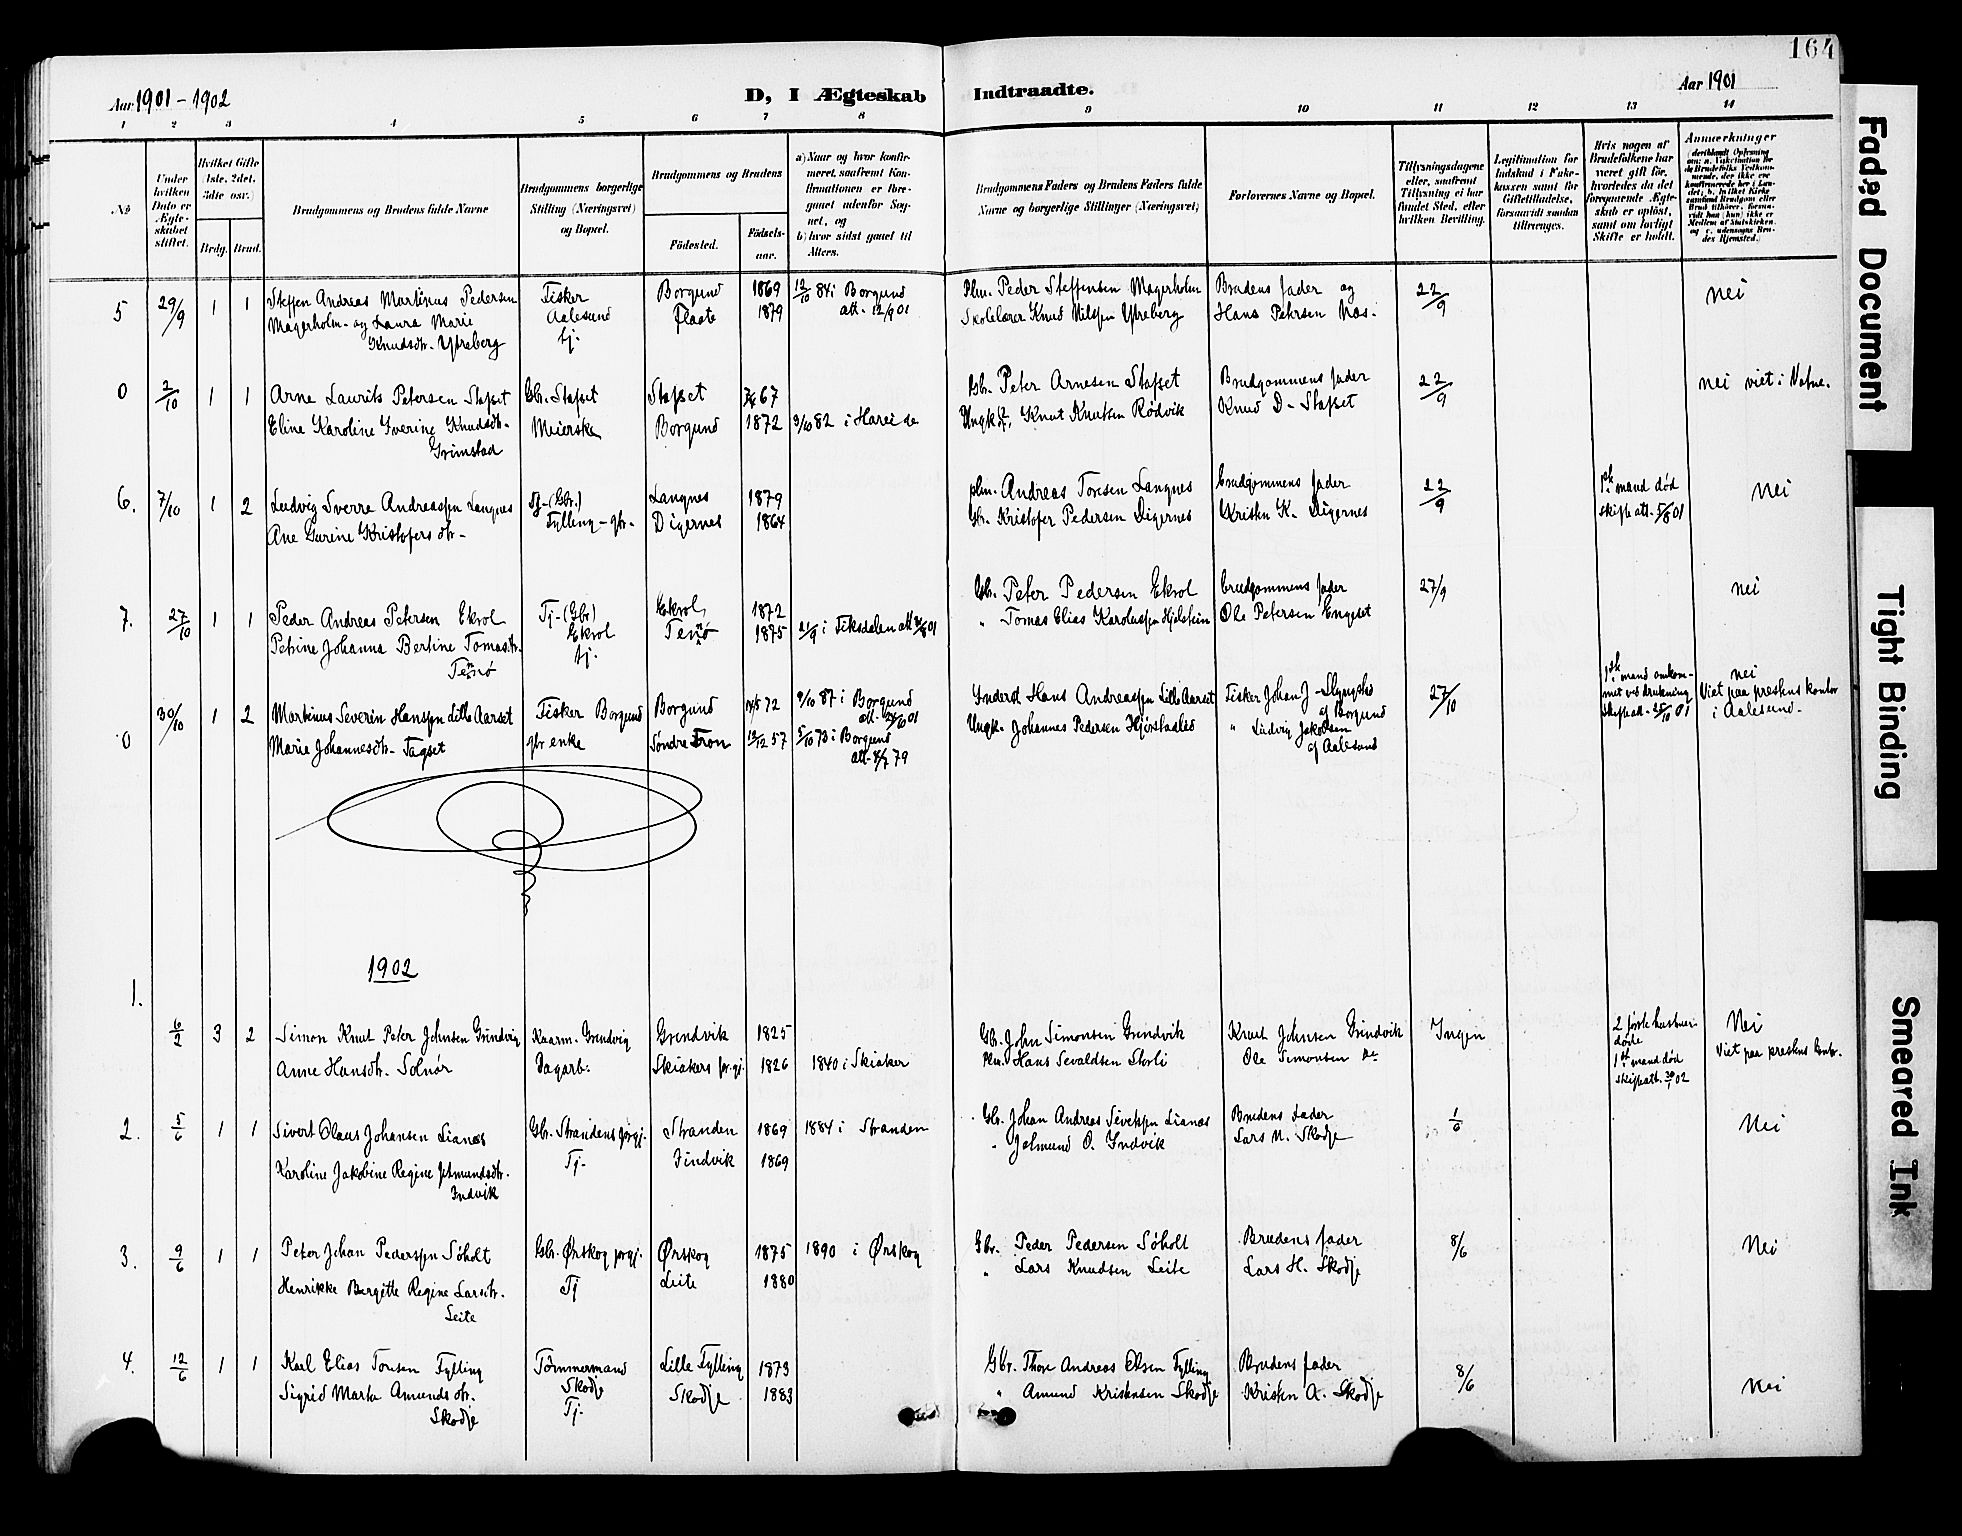 164
Aar 1901 - 1902
D, I Ægteskab Indtraadte.
Aar 1901
1 2 3 4 5 6 7 8 9 10 11 12 13 14
No
Under hvilken Dato er Ægteskabet stiftet.
Hvilket Gifte (1ste, 2det, 3die osv.)
Brdg. Brud.
Brudgommens og Brudens fulde Navne
Brudgommens borgerlige Stilling (Næringsvei) og Bopæl.
Brudgommens og Brudens
Födested. Födselsaar.
a) Naar og hvor konfirmeret, saafremt Konfirmationen er foregaaet udenfor Sognet, og
b) hvor sidst gaaet til Alters.
Brudgommens Faders og Brudens Faders fulde Navne og borgerlige Stillinger (Næringsvei)
Forlovernes Navne og Bopæl.
Tillysningsdagene eller, saafremt Tillysning ei har fundet Sted, efter hvilken Bevilling.
Legitimation for Indskud i Enkekassen samt for Giftetilladelse, forsaavidt saadan tiltrænges.
Hvis nogen af Brudefolkene har været gift før, hvorledes da det foregaaende Ægteskab er oplöst, samt om lovligt Skifte er holdt.
Anmærkninger
5 29/9 1 1 Steffen Andreas Martinus Pedersen Fisker Borgund 1869 12/10 84 i Borgund Plm. Peder Steffensen Magerholm Brudens fader og 22/9 nei
Magerholm - og Laura Marie Aalesund Flaate 1879 att. 12/9 01 Skolelærer Knud Nilssen Ytreberg Hans Petersen Næs.
Knudsdtr. Ytreberg tj.
0 2/10 1 1 Arne Laurits Petersen Stafset Gb. Stafset Stafset 67 Gb. Peter Arnesen Stafset Brudgommens fader 22/9 nei viet i Vatne.
Eline Karoline Iverine Knudsdtr. Meierske Borgund 1872 3/10 82 i Hareide Ungk. Knut Knutsen Rødvik Knud D. Stafset
Grimstad
6. 7/10 1 2 Ludvig Sverre Andreassen Langnes Tj-(Gbr.) Langnes 1879 plm. Andreas Toresen Langnes brudgommens fader 22/9 1ste mand død nei
Ane Gurine Kristofersdtr. Fylling - gbr. Digernes 1864 Gb. Kristofer Pedersen Digernes Kristen K. Digernes skifte att. 5/8 01
7. 27/10 1 1 Peder Andreas Petersen Ekrol Tj-(Gbr) Ekrol 1872 Gb. Peter Pedersen Ekrol brudgommens fader 27/9 nei
Petrine Johanna Bertine Tomasdtr. Ekrol Tenø 1875 21/9 i Fiksdalen att 01 " Tomas Elias Karolussen Hjelstein Ole Petersen Engeset
Tennø tj.
0 30/10 1 2 Martinus Severin Hanssen Lille Aarset Fisker Borgund Borgund 14/5 72 9/10 87 i Borgund att. 01 Inderst Hans Andreassen Lille Aarset Fisker Johan J. af Borgund 27/10 1ste mand omkommet ved drukning nei
Marie Johannesdtr. Tagset gbr enke Søndre Fron 12/12 57 5/10 73 i Borgund att. 79 Ungk. Johannes Pedersen " Ludvig Jakobsen af Aalesund skifte att. 25/10 01 Viet paa prestens kontor i Aalesund.
1902
1. 6/2 3 2 Simon Knut Peter Johnsen Grindvig Kaarm. Grendvig Grendvik 1825 Gb. John Simonsen Grendvik Knut Johnsen Grindvik Ingen 2 første hustruer døde Nei
Anne Hansdtr. Solnør Dagarb. Skiakers prgj. 1826 1840 i Skiaker Plm. Hans Sevaldsen Storli Ole Simonsen Do 1ste mand død skifteatt. 30/1 02 Viet paa prestens kontor.
2. 5/6 1 1 Sivert Olaus Johansen Lianes Gbr. Strandens prgj. Stranden 1869 1884 i Stranden Gbr. Johan Andreas Sivertsen Lianes Brudens fader 1/6 Nei
Karoline Jakobine Regine Jetmundsdtr. Tj. Indvik 1869 " Jetmund O. Indvik Lars N. Skodje
Indvik
3. 9/6 1 1 Peter Johan Pederssen Søholt Gbr. Ørskog prgj. Ørskog 1875 1890 i Ørskog Gbr. Peder Pedersen Søholt Brudens fader 8/6 Nei
Henrikke Bergitte Regine Larsdtr. Tj Leite 1880 " Lars Knudsen Leite Lars H. Skodje
Leite
4. 12/6 1 1 Karl Elias Toresen Fylling Tømmermand Lille Fylling 1873 Gbr. Thore Andreas Olsen Fylling Brudens fader 8/6 Nei
Sigrid Marta Amundsdtr. Skodje Skodje 1883 " Amund Kristensen Skodje Kristen A. Skodje
Skodje Tj.
Faded Document
Tight Binding
Smeared Ink